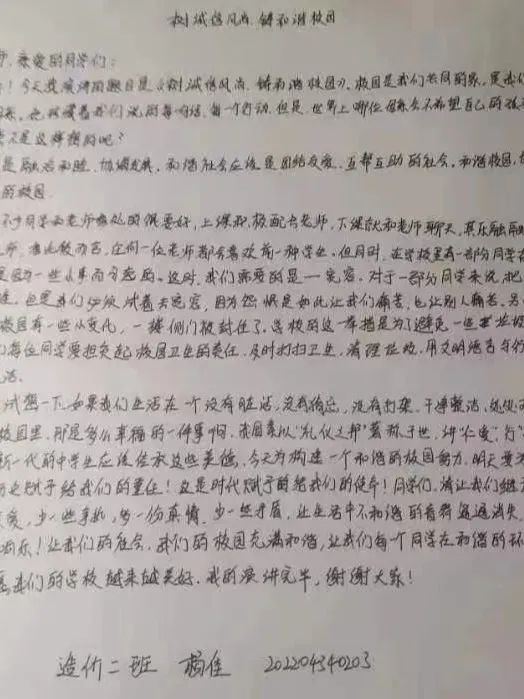 树诚信风尚 铸和谐校园
亲爱的同学们:
！今天我演讲的题目是《树诚信风尚、铸和谐校园》。校园是我们共同的家，是我们
我们说的每句话、每一个行动。但是，世界上哪位母亲会不希望自己的孩
不是这样想的呢？
是融洽和睦、协调发展，和谐社会应该是团结友爱、互帮互助的社会，和谐校园，
的校园。
不少同学和老师相处的很要好，上课积极配合老师，下课就和老师聊天，其乐融融
任何一位老师都会喜欢前一种学生。但同时，在学校里有一部分同学
因为一些小事而 这时，我们需要的是一 宽容。对于一部分同学来说，把
但是我们必须试着去宽容，因为怨恨是如此让我们痛苦，也让别人痛苦。
校园有一些小变化，一 侧门被封住了。学校的这一举措是为了避免一些
每位同学要担负起校园卫生的责任，及时打扫卫生，清理垃圾，用文明语言与行
活。
试想一下，如果我们生活在一个没有脏话，没有 没有打架，干净整洁，
校园里，那是多么幸福的一件事啊。我国素以“礼仪之邦”著称于世，讲“仁爱”，行“
新一代的中学生应该传承这些美德，今天为构建一个和谐的校园努力，明天要为
赋予给我们的重任！这是时代赋予给我们的使命！同学们，请让我们继
爱，少一些 多一份真情，少一些矛盾，让生活中不和谐的音符通通消失，
让我们的社会，我们的校园充满和谐，让我们每个同学在和谐的环
我们的学校越来越美好，我的演讲完毕，谢谢大家！
造价二班 杨佳 202204340203